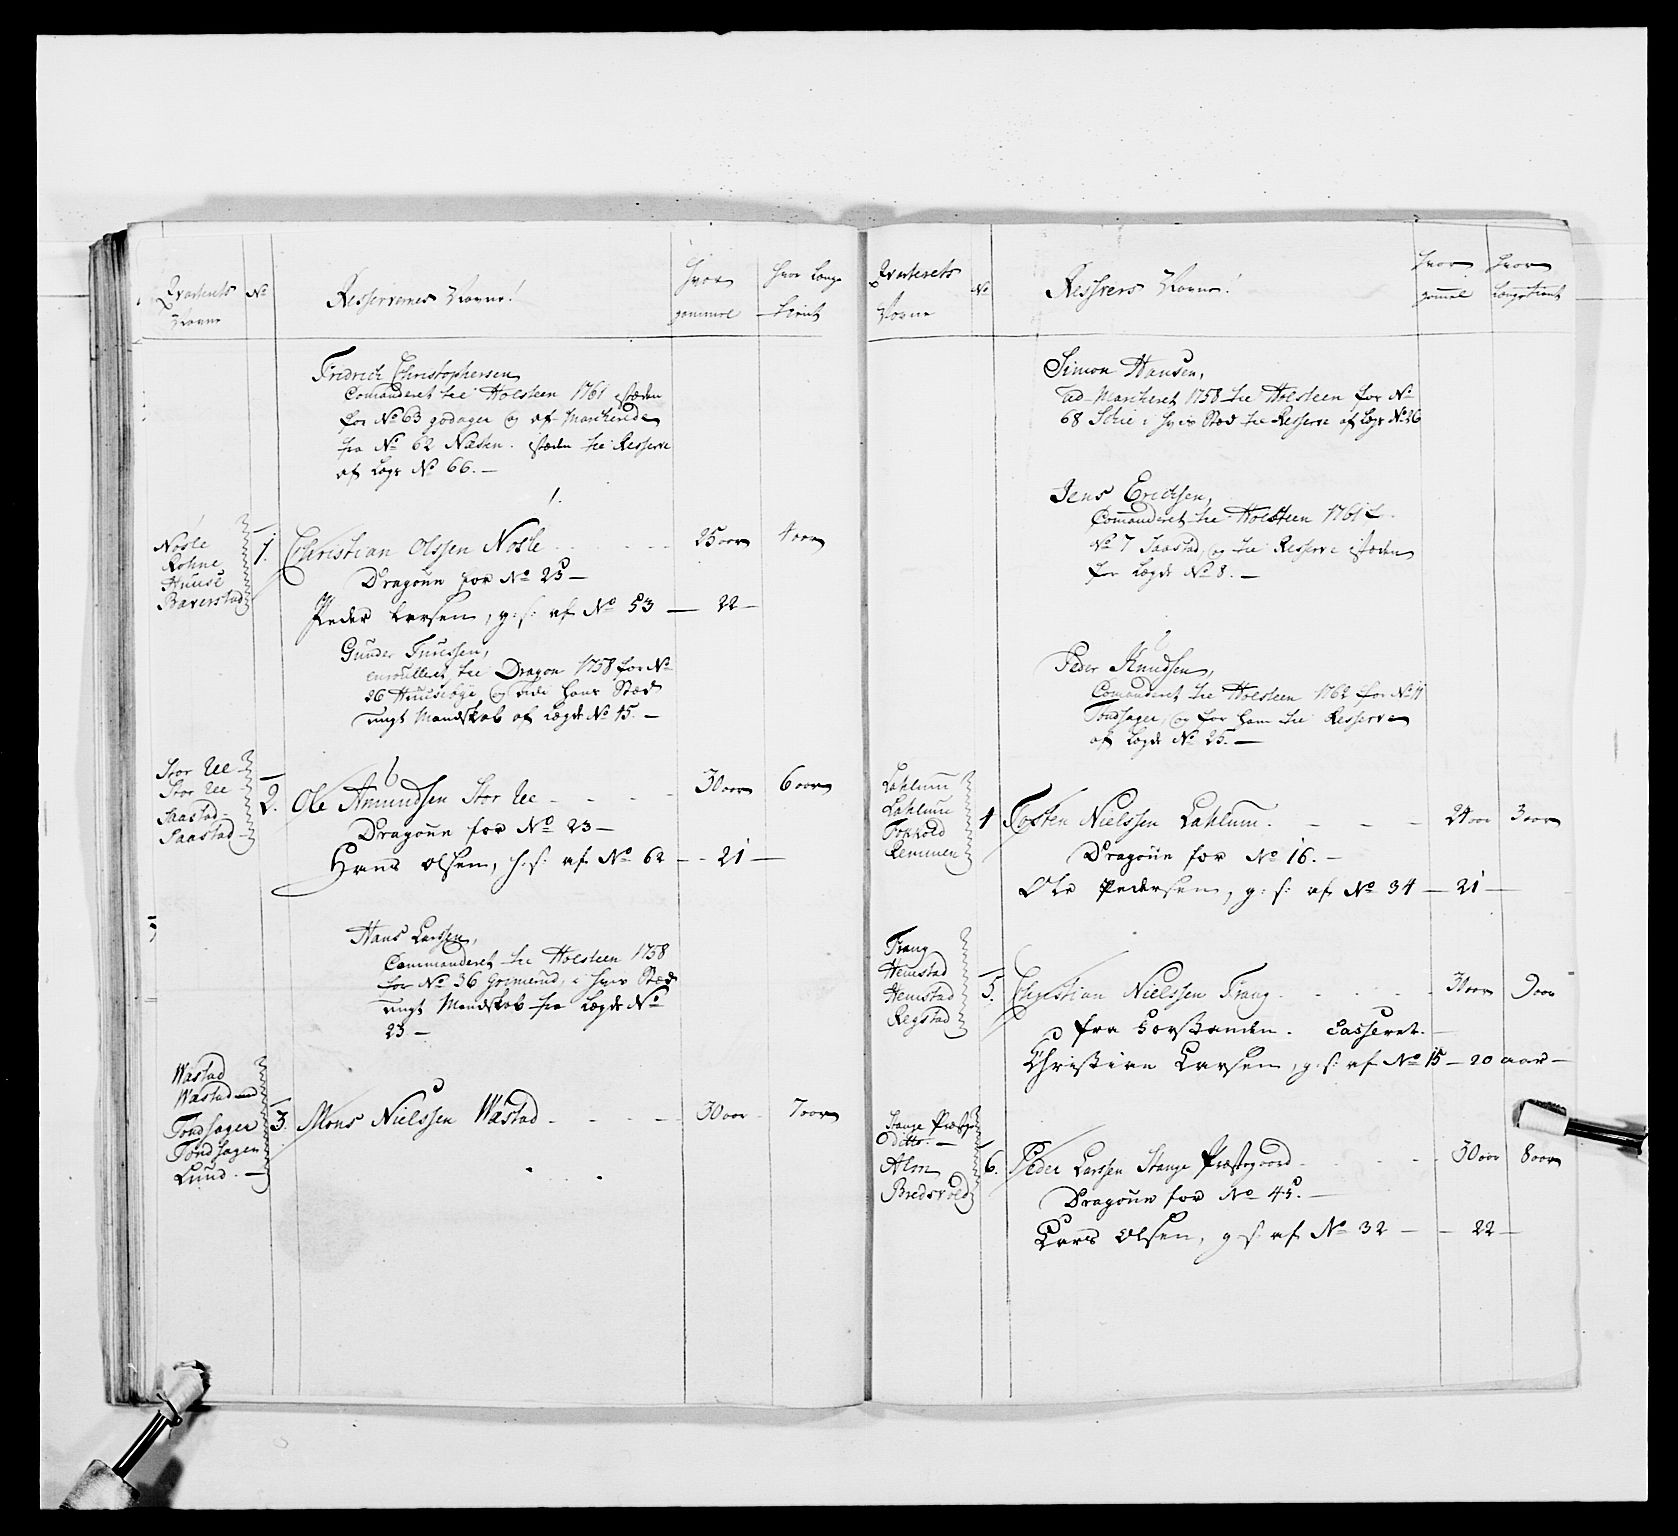 Qvarterets Navne
No
Resservernes Navne!
Hvor gammel
Hvor Længe Tient
Fridrich Christophersen
Comanderet til Holsteen 1761 steden
for No 63 godager og af Marcherede
fra No 62 Næsten. steden til Resserve
af Legs No 66. —
1.
Nosle
Rohne
Huuse
Baverstad
1.
Christian Olssen Nosle
25 aar
4 aar
Dragoun for No 25 —
Peder Larsen, g: s: af No 53 — 22 —
Gunder Turessen,
enroulleret til Dragon 1758 for No
26 Huusebye og udi hans Stæd
ungt Mandskab af Legde No 45. —
Stor Ree
Stor Ree
Saastad
Saastad
2.
6
Ole Amundsen Stor Ree
30 aar
6 aar
Dragoun for No 23 —
Hans Olsen, h: s: af No 62 — 21 —
Hans Larssen,
Commanderet til Holsteen 1758
for No 36 Grimerud, i hvis Stæd
ungt Mandskab fra Legde No
23 —
Wæstad
Wæstad
Tondsager
Tondsagen
Lund. —
3.
Mons Nielssen Wæstad
30 aar
7 aar
Qvarterets Navne
No
Ressrers Navne!
Hvor gammel
Hvor Længe tient
Simon Hansen,
ud Marcheret 1758 til Holsteen for No
68 Schie i hvis Stæd til Resserve af Legs No 26
Jens Erichsen,
Comanderet til Holsteen 1761 f.
No 7 Saastad, og til Resserve steden
for Legde No 8. —
6
Peder Knudsen,
Comanderet til Holsteen 1762 for No 11
Tondsager, og for ham til Resserve
af Legde No 25. —
Lahlum
Lahlum
Fokhold
Remmen
4
Tosten Nielssen Lahlum.
24 aar
3 aar
Dragoun for No 16. —
Ole Pedersen, g: s: af No 34 — 21 —
Frang
Hemstad
Hemstad
Regstad
5.
Christian Nielssen Frang
31 aar
9 aar
fra Forstanden. Casseret.
Christian Larsen, g: s: af No 15 — 20 aar —
Stange Præstg:
Ditto. —
Alm
Bredsvold
6.
Peder Larssen Stange Præstegaard
30 aar
8 aar
Dragoun for No 45. —
Lars Olsen, g s: af No 32 — 22 —